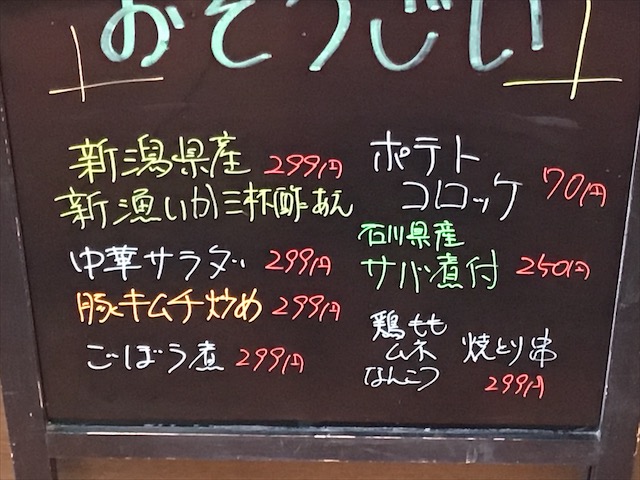 おそうざい
新潟県産 299円
新漁いか三杯酢あえ
中華サラダ 299円
豚キムチ炒め 299円
ごぼう煮 299円
ポテト
コロッケ 70円
石川県産
サバ煮付 250円
鶏もも
ムネ
なんこつ
焼とり串
299円